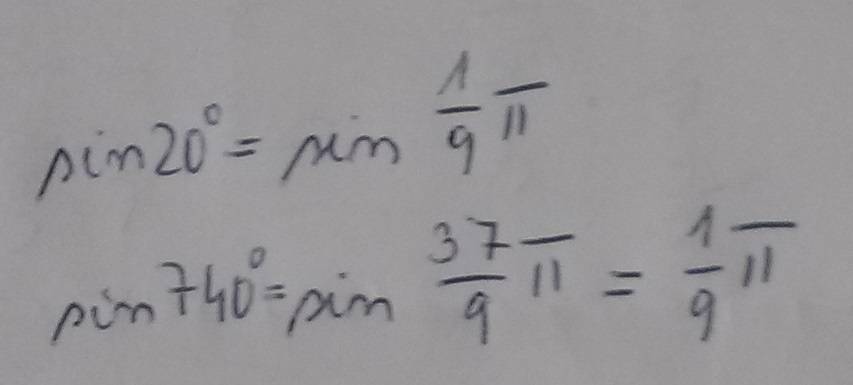 sin20° = sin 1/9 π
sin740° = sin 37/9 π = 1/9 π